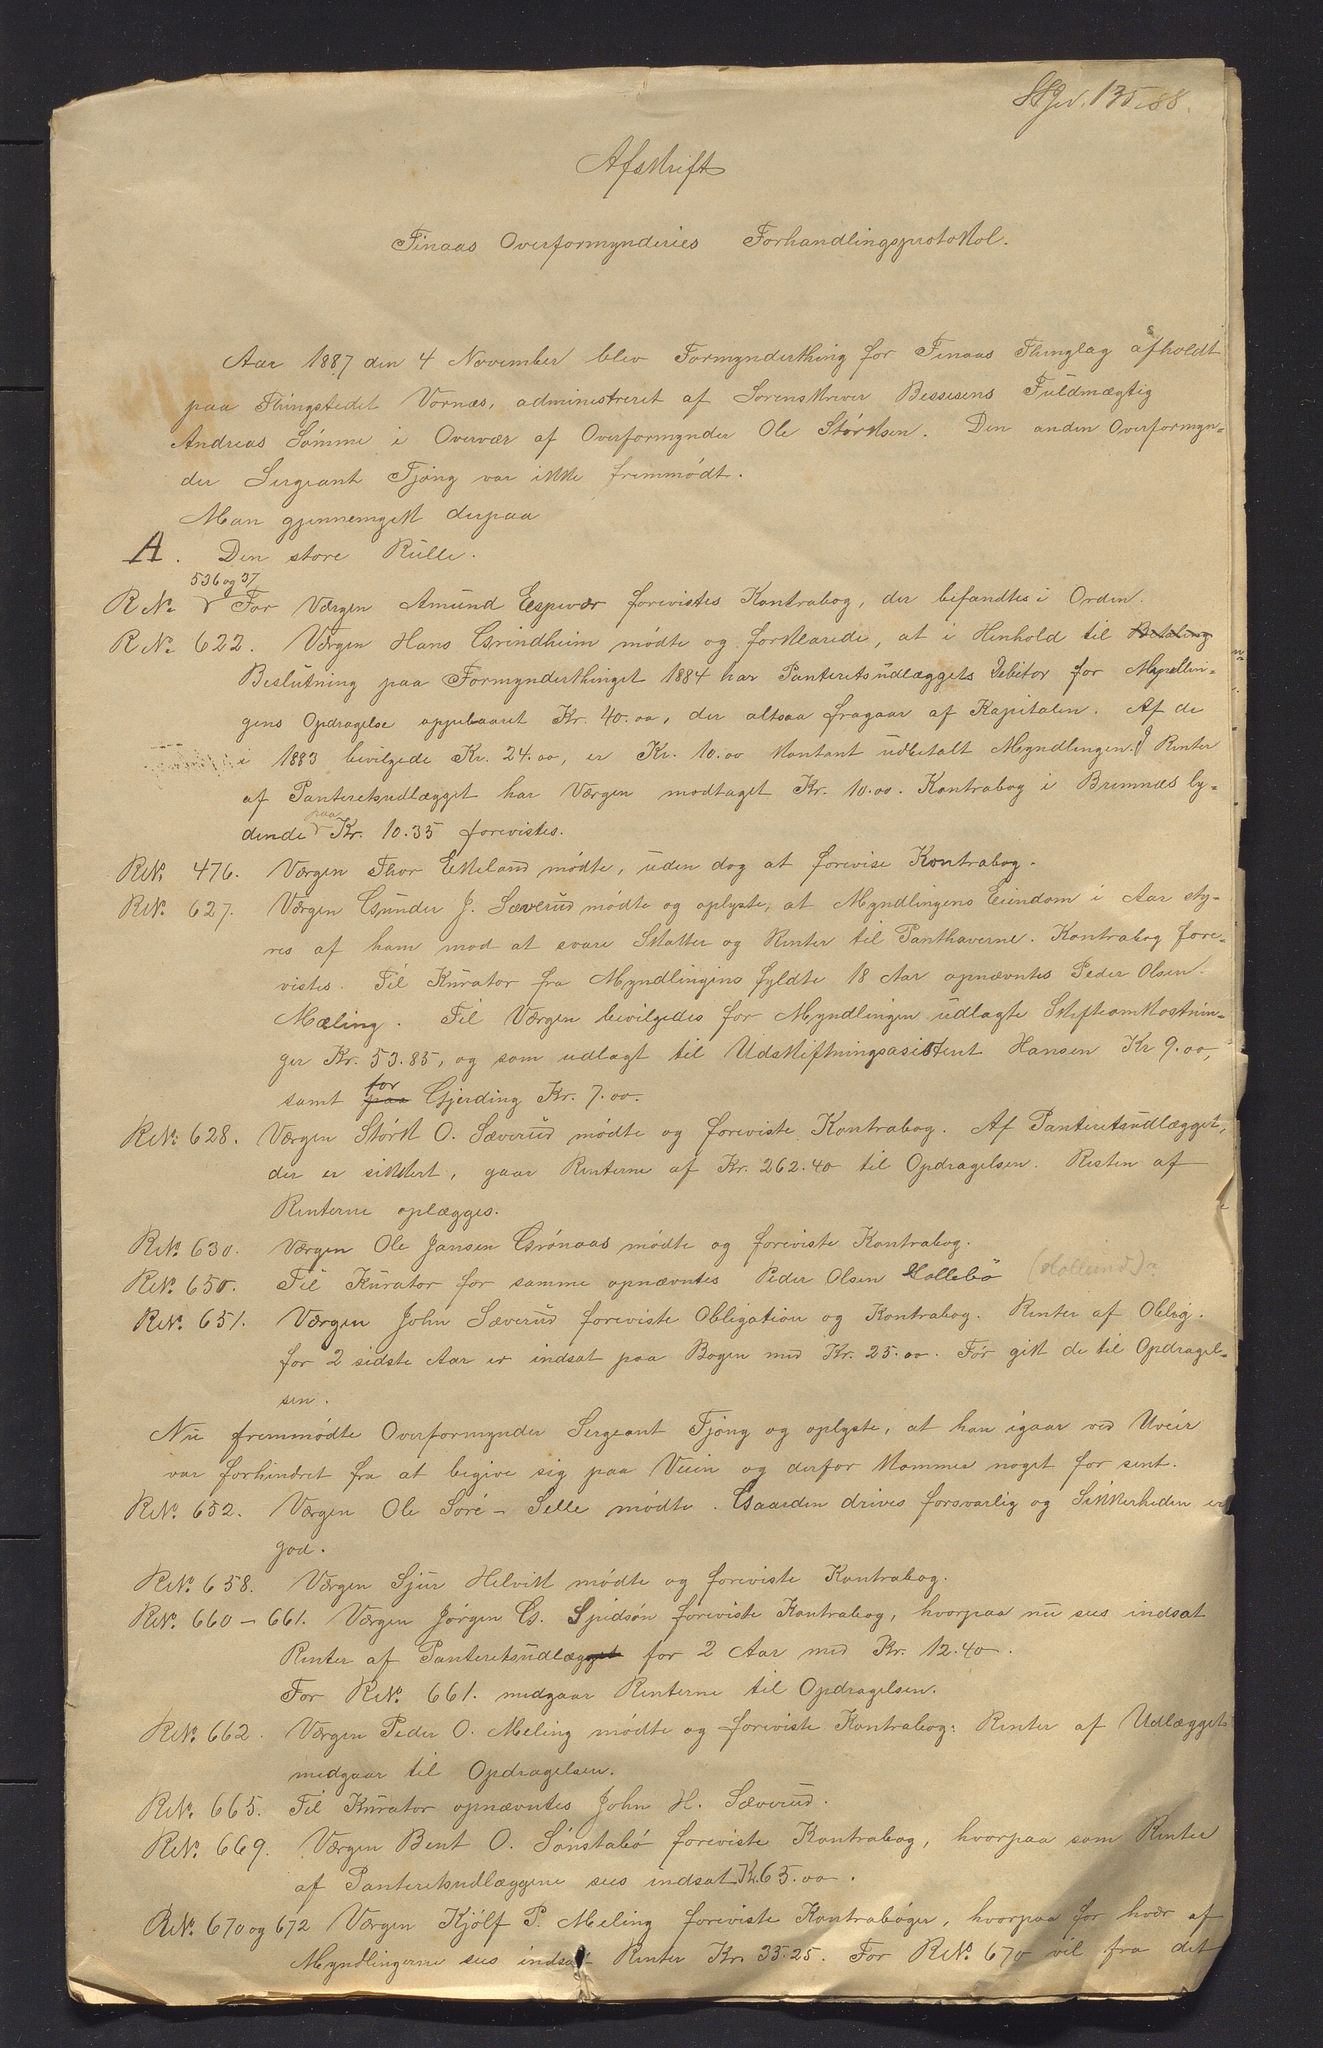 135/88.
Afskrift
Finaas Overformynderies Forhandlingsprotokol.
Aar 1887 den 4 November blev Formynderthing for Finaas Thinglag afholdt
paa Thingstedet Vornæs, administreret af Sorenskriver Bessesens Fuldmægtig
Andreas Sømme i Overvær af Overformynder Ole Størksen. Den anden Overformyn-
der Sergeant Fjøng var ikke fremmødt.
Man gjennemgik derpaa
A. Den store Rulle.
R№ 536 og 37 For Værgen Amund Espevær forevistes Kontrabog, der befandtes i Orden.
R№ 622. Værgen Hans Grindheim mødte og forklarede, at i Henhold til Betaling
Beslutning paa Formynderthinget 1884 har Panteretsudlæggets Debitor for Myndlin-
gens Opdragelse oppebaaret Kr. 40.00, der altsaa fragaar af Kapitalen. Af de
i 1883 bevilgede Kr. 24.00, er Kr. 10.00 kontant udbetalt Myndlingen. I Renter
af Panteretsudlægget har Værgen modtaget Kr. 10.00. Kontrabog i Bremnæs ly-
dende paa Kr. 10.35 forevistes.
R№ 476. Værgen Thor Ekeland mødte, uden dog at forevise Kontrabog.
R№ 627. Værgen Gunder J. Sæverud mødte og oplyste, at Myndlingens Eiendom i Aar sty-
res af ham mod at svare Skatter og Renter til Panthaverne. Kontrabog fore-
vistes. Til Kurator fra Myndlingens fyldte 18 Aar opnævntes Peder Olsen
Mæling. Til Værgen bevilgedes for Myndlingen udlagte Skifteomkostnin-
ger Kr. 53.85, og som udlagt til Udskiftningsasistent Hansen Kr 9.00,
samt paa for Gjerding Kr. 7.00.
R№ 628. Værgen Størk O. Sæverud mødte og foreviste Kontrabog. Af Panteretsudlægget,
der er sikkert, gaar Renterne af Kr. 262.40 til Opdragelsen. Resten af
Renterne oplægges.
R№ 630. Værgen Ole Jansen Grønaas mødte og foreviste Kontrabog.
R№ 650. Til Kurator for samme opnævntes Peder Olsen Hollebø
R№ 651. Værgen John Sæverud foreviste Obligation og Kontrabog. Renter af Oblig.
for 2 sidste Aar er indsat paa Bogen med Kr. 25.00. Før gik de til Opdragel-
sen.
Nu fremmødte Overformynder Sergeant Fjøng og oplyste, at han igaar ved Uveir
var forhindret fra at begive sig paa Veien og derfor kommer noget for sent.
R№ 652. Værgen Ole Søre-Selle mødte. Gaarden drives forsvarlig og Sikkerheden er
god.
R№ 658. Værgen Sjur Helvik mødte og foreviste Kontrabog.
R№ 660-661. Værgen Jørgen G. Spidsøn foreviste Kontrabog, hvorpaa nu sees indsat
Renter af Panteretsudlægget for 2 Aar med Kr. 12.40.
For R№ 661. medgaar Renterne til Opdragelsen.
R№ 662. Værgen Peder O. Meling mødte og foreviste Kontrabog. Renter af Udlægget
medgaar til Opdragelsen.
R№ 665. Til Kurator opnævntes John H. Sæverud.
R№ 669. Værgen Bent O. Sønstabø foreviste Kontrabog, hvorpaa som Renter
af Panteretsudlæggene sees indsat Kr. 65.00.
R№ 670 og 672 Værgen Kjølf P. Meling foreviste Kontrabøger, hvorpaa for hver af
Myndlingerne sees indsat Renter Kr. 35.25. For R№ 670 vil fra det